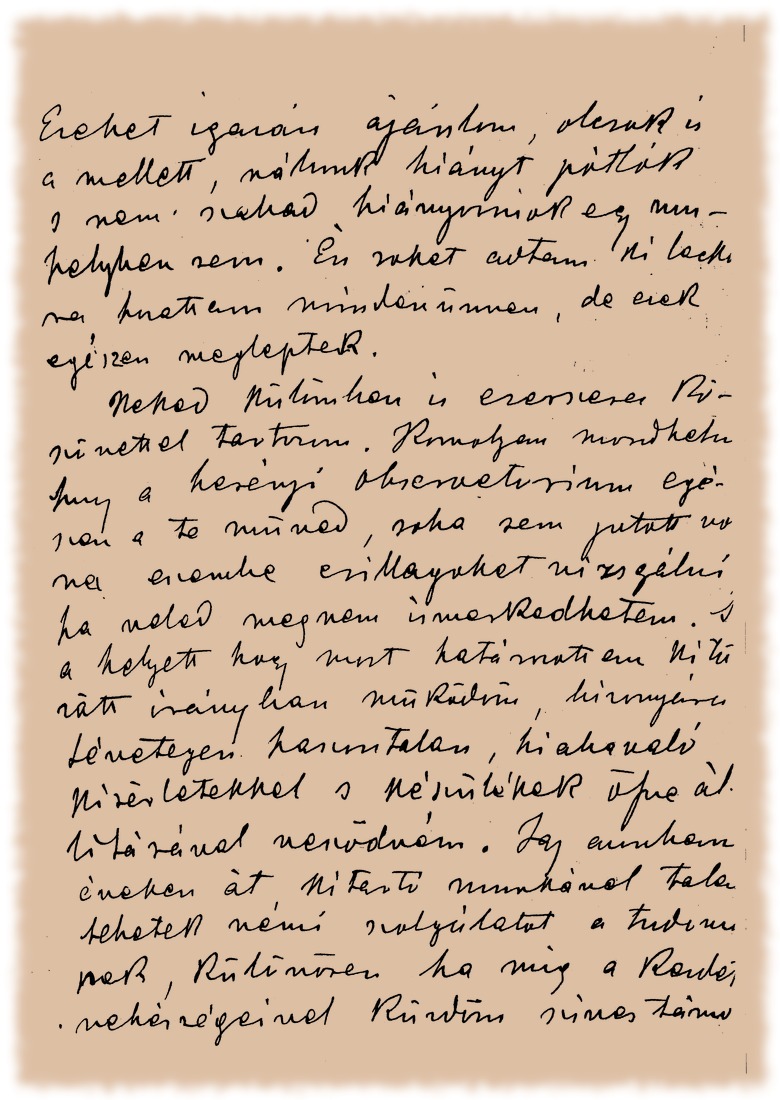 Ezeket igazán ajánlom, olcsók is
a mellett, nálunk hiányt pótlók
s nem szabad hiányozniok egy mű-
helyben sem. Én sokat adtam ki
va hozattam mindenünnen, de ezek
egészen megleptek.
Neked különben is ezerszeres kö-
szönettel tartozom. Komolyan mondhatom
hogy a herényi observatorium egé-
szen a te műved, soha sem jutott vo
na eszembe csillagokat vizsgálni
ha veled meg nem ismerkedhetem. S
a helyett hogy most határozottan kitü
zött irányban működöm, bizonyára
tévetegen haszontalan, hiábavaló
kisérletekkel s készülékek össze ál
litásával vesződném. Igy azonban
éveken át kitartó munkával tala
tehetek némi szolgálatot a tudomá
nak, különösen ha mig a kezdet
nehézségeivel küzdöm szives támo